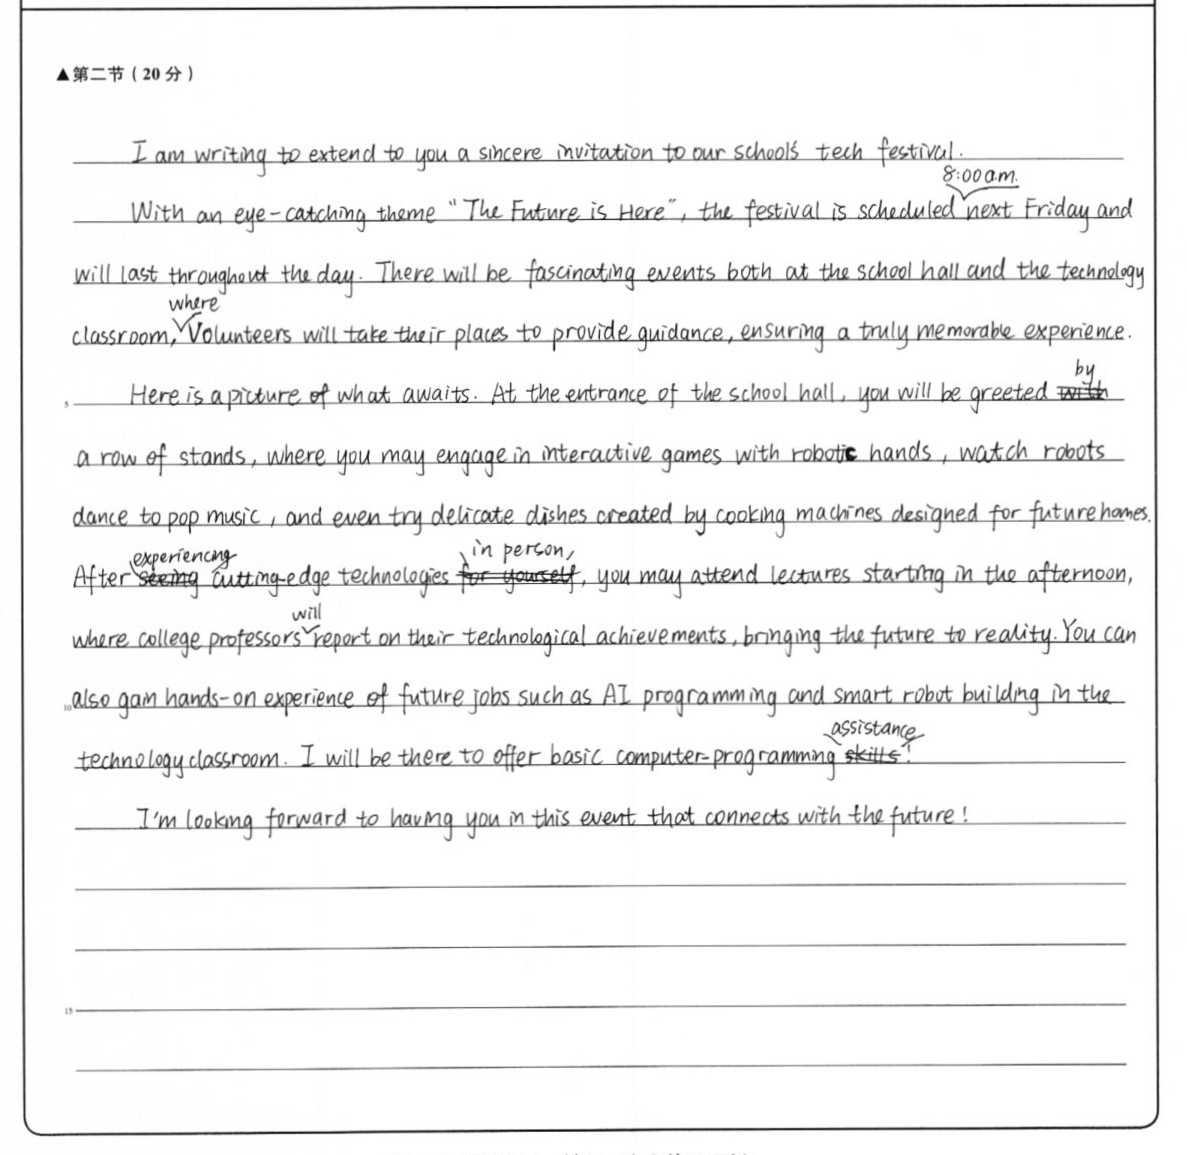 ▲第二节（20 分）
I am writing to extend to you a sincere invitation to our school's tech festival.
8:00 a.m.
With an eye-catching theme "The Future is Here", the festival is scheduled next Friday and
will last throughout the day. There will be fascinating events both at the school hall and the technology
where
classroom, Volunteers will take their places to provide guidance, ensuring a truly memorable experience.
by
5 Here is a picture of what awaits. At the entrance of the school hall, you will be greeted with
a row of stands, where you may engage in interactive games with robotic hands, watch robots
dance to pop music, and even try delicate dishes created by cooking machines designed for future homes.
experiencing in person,
After seeing cutting-edge technologies for yourself, you may attend lectures starting in the afternoon,
will
where college professors report on their technological achievements, bringing the future to reality. You can
10 also gain hands-on experience of future jobs such as AI programming and smart robot building in the
assistance
technology classroom. I will be there to offer basic computer-programming skills!
I'm looking forward to having you in this event that connects with the future!
15